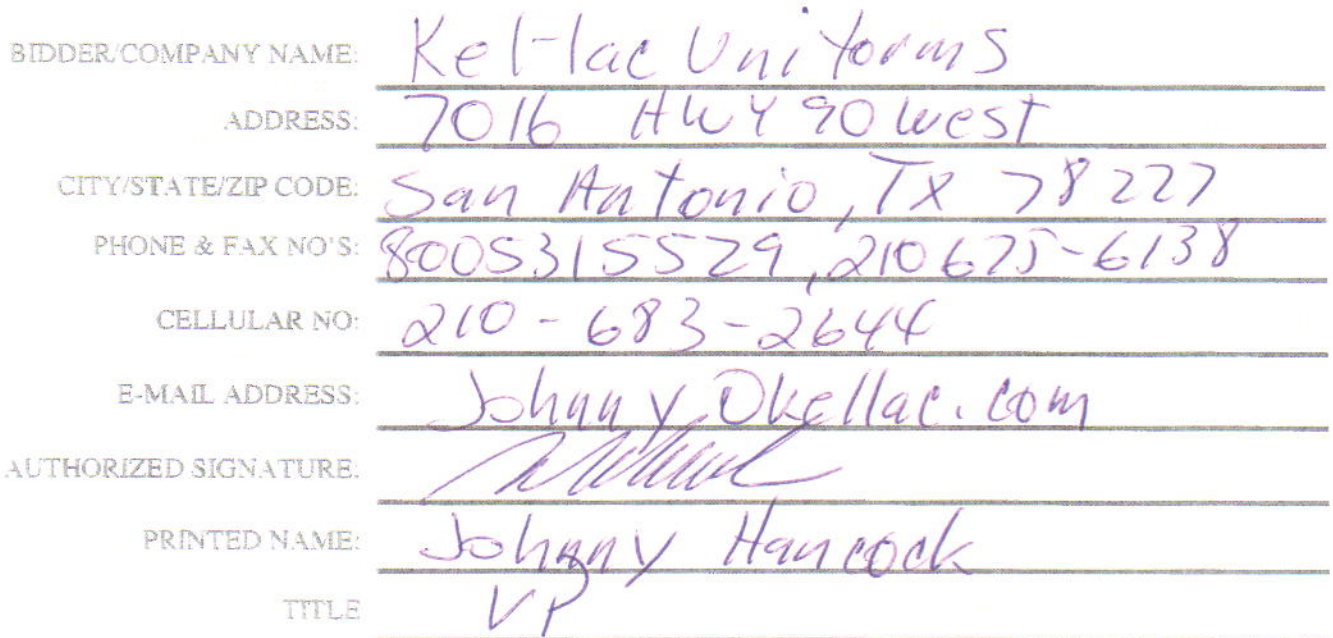 BIDDER/COMPANY NAME: Kel-lac Uniforms
ADDRESS: 7016 HWY 90 West
CITY/STATE/ZIP CODE: San Antonio, TX 78227
PHONE & FAX NO'S: 8005315529, 210 675-6138
CELLULAR NO: 210-683-2644
E-MAIL ADDRESS: Johnny@kellac.com
AUTHORIZED SIGNATURE:
PRINTED NAME: Johnny Hancock
TITLE VP